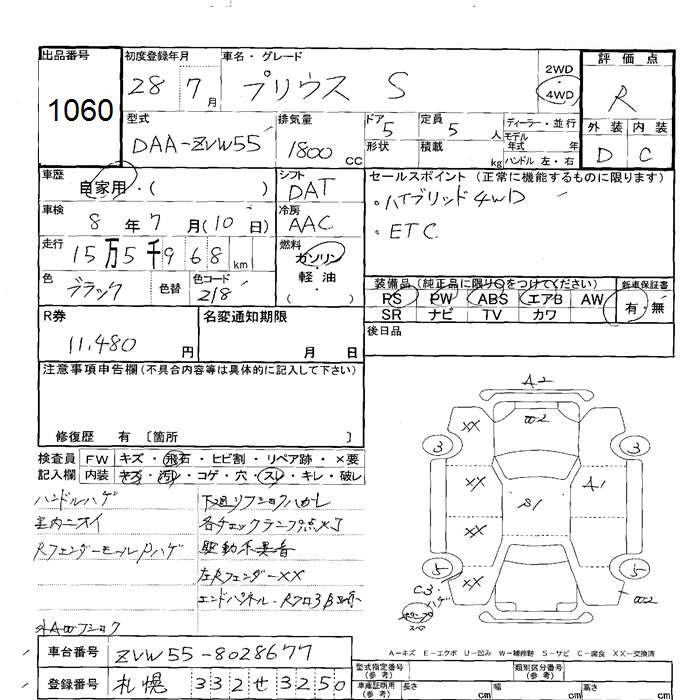 出品番号 初度登録年月 車名・グレード 評価点
1060 28 7月 プリウス S 2WD 4WD R
型式 排気量 ドア 定員 ディーラー・並行 外装 内装
DAA-ZVW55 1800cc 5 5人 モデル年式 年 D C
形状 積載 kg ハンドル 左・右
車歴 シフト セールスポイント(正常に機能するものに限ります)
自家用・( ) DAT ・ハイブリッド4WD
車検 冷房 ・ETC
8年7月(10日) AAC
走行 燃料
15万5千968km ガソリン・軽油( )
色 色替 色コード 装備品(純正品に限り○をつけてください) 新車保証書
ブラック 218 PS PW ABS エアB AW 有・無
SR ナビ TV カワ
R券 名変通知期限 後日品
11,480円 月 日
注意事項申告欄(不具合内容等は具体的に記入して下さい)
修復歴 有〔箇所 〕
検査員記入欄 FW キズ・飛石・ヒビ割・リペア跡・×要
内装 キズ・汚レ・コゲ・穴・スレ・キレ・破レ
ハンドルハゲ
室内ニオイ
Rフェンダーモール
各チェックランプ点
左Rフェンダー XX
エンドパネル・Rフロア
A2
W2
XX
3 3
XX A1
S1
XX
5 5
XX
C3
W2
A-キズ E-エクボ U-凹み W-補修跡 S-サビ C-腐食 XX-交換済
車台番号 ZVW55-8028677 型式指定番号(参考) 類別区分番号(参考)
登録番号 札幌 332せ3250 車庫証明用(参考) 長さ cm 幅 cm 高さ cm